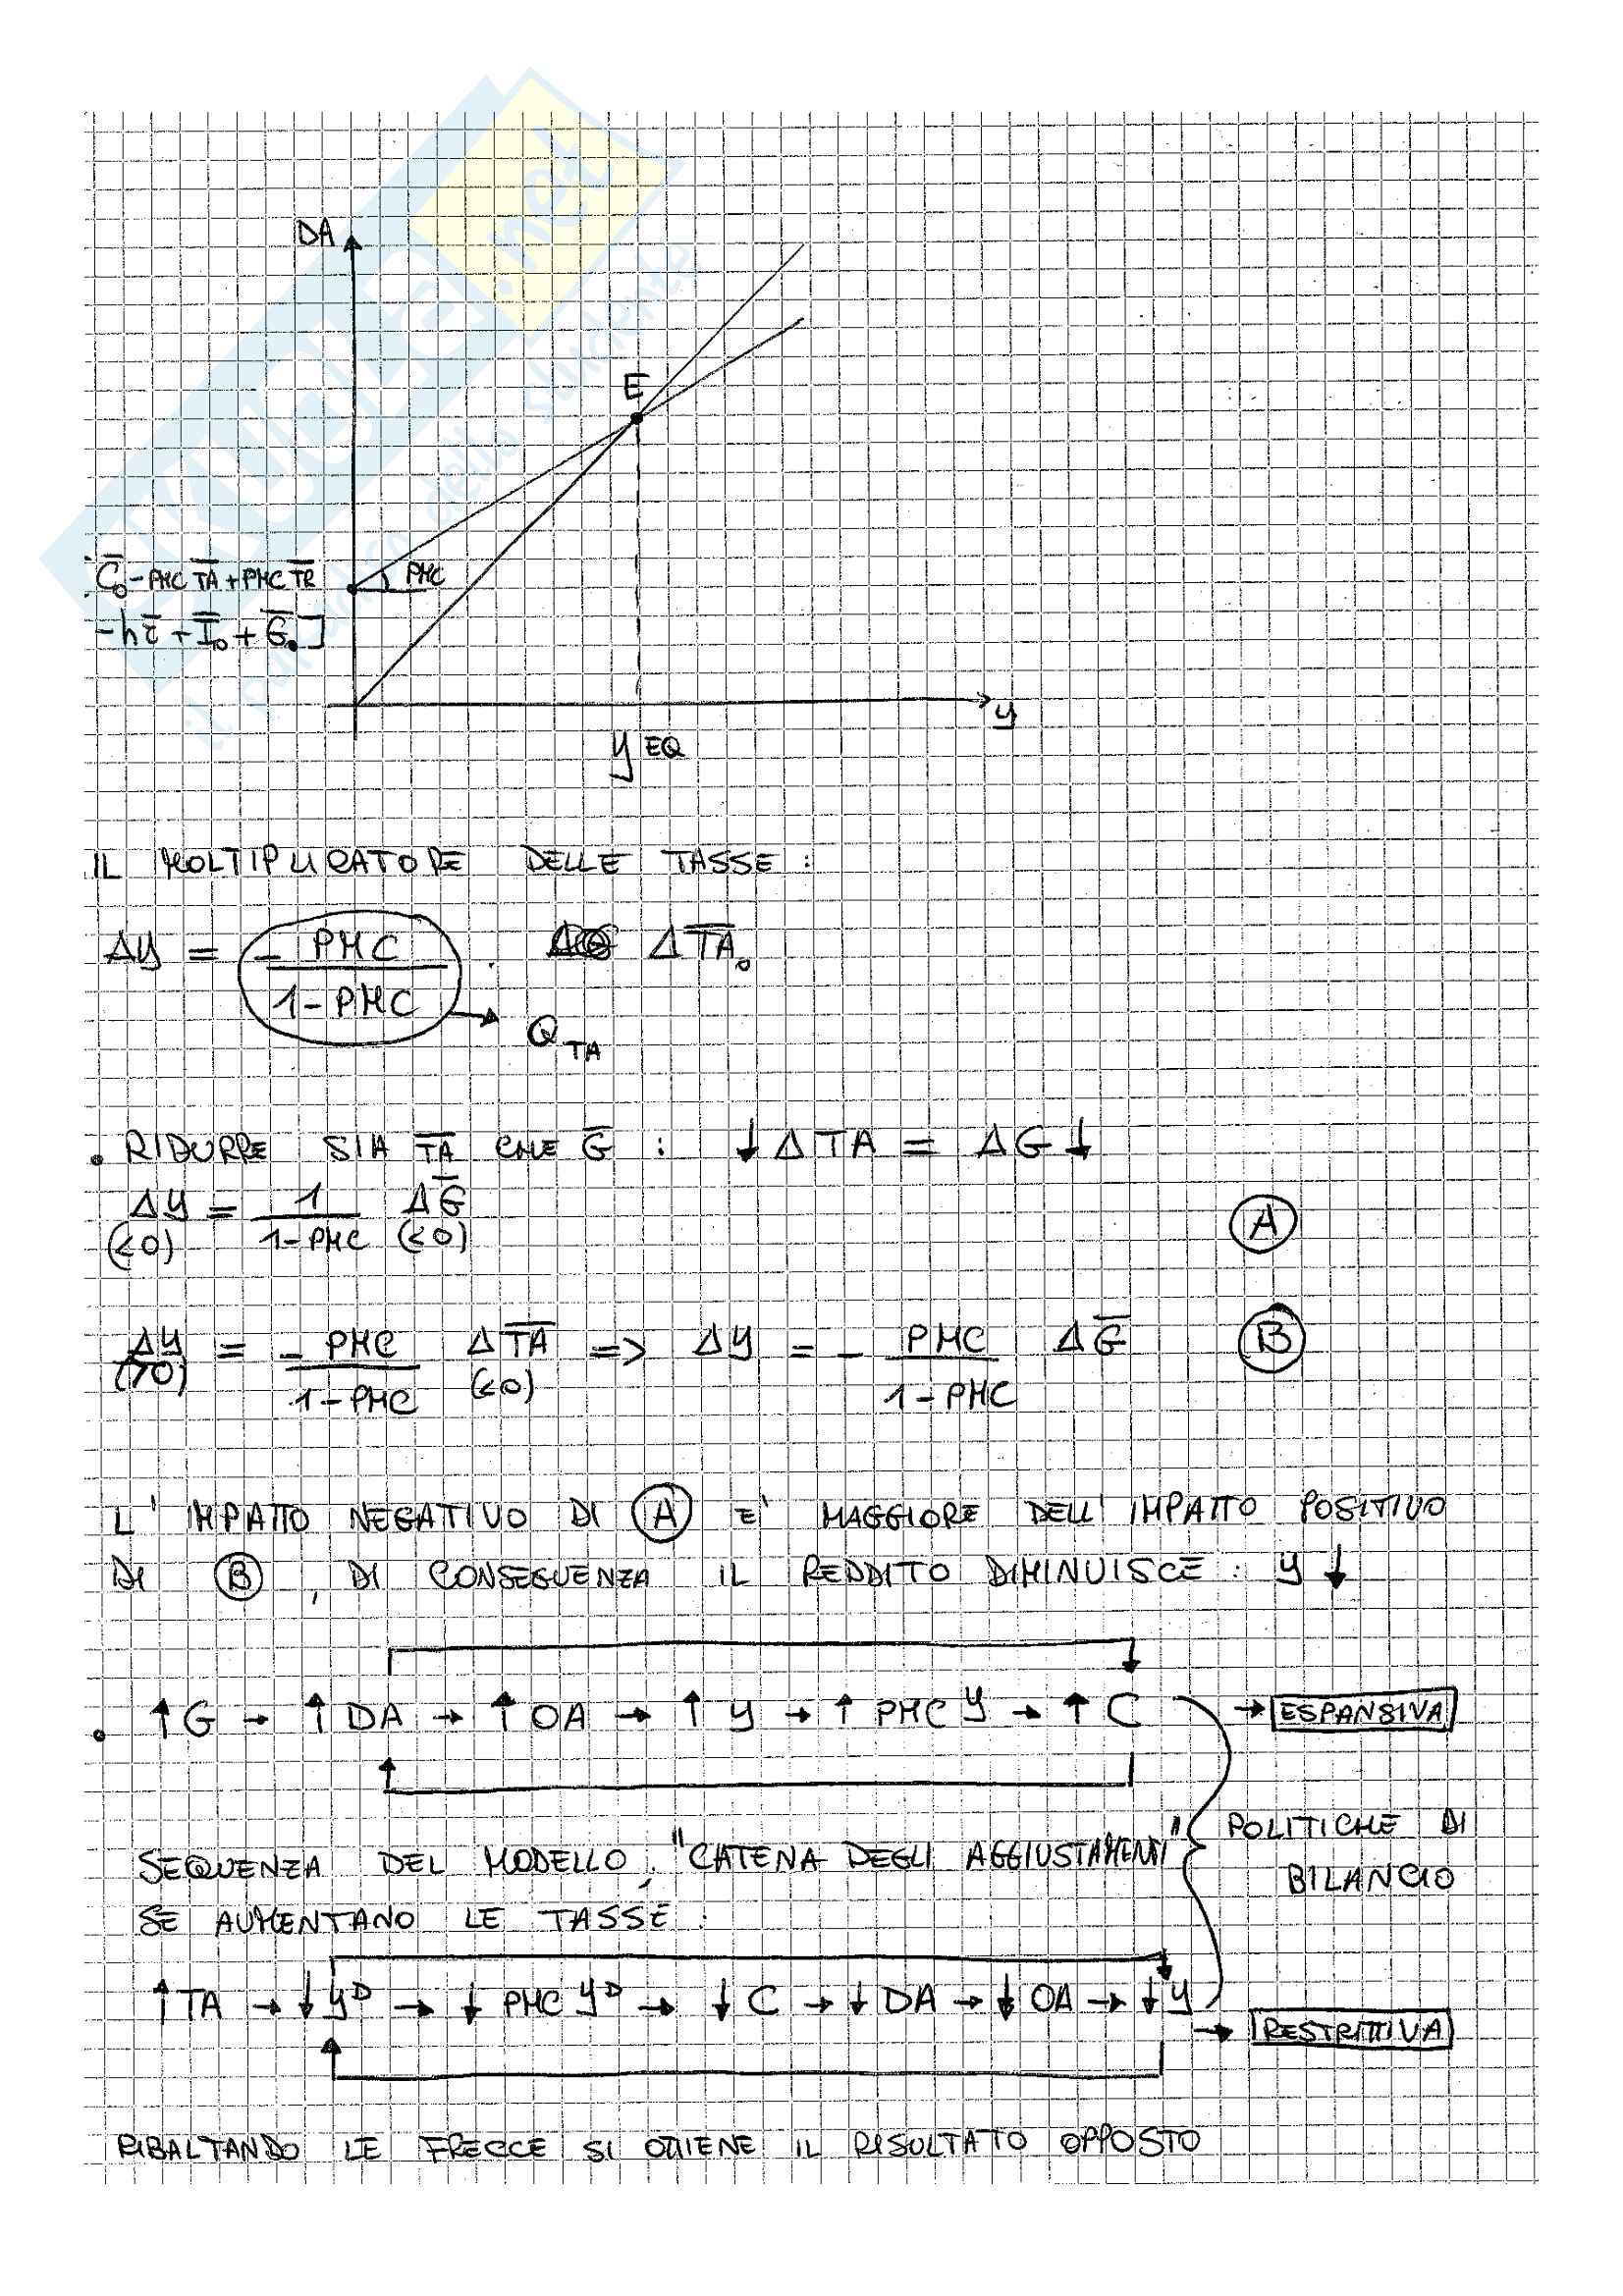 DA
E
C̄₀ - PMC T̄Ā + PMC T̄R̄
PMC
- h ī + Ī₀ + Ḡ₀]
y
y EQ
IL MOLTIPLICATORE DELLE TASSE :
Δy = - PMC / 1 - PMC . Δ T̄Ā₀
Q TA
. RIDURRE SIA T̄Ā CHE Ḡ : ↓ Δ TA = ΔG ↓
Δy = 1 / 1 - PMC ΔḠ (A)
(<0) (<0)
Δy = - PMC / 1 - PMC Δ T̄Ā => Δy = - PMC / 1 - PMC ΔḠ (B)
(>0) (<0)
L' IMPATTO NEGATIVO DI (A) E' MAGGIORE DELL' IMPATTO POSITIVO
DI (B) , DI CONSEGUENZA IL REDDITO DIMINUISCE : y ↓
. ↑ G → ↑ DA → ↑ OA → ↑ y → ↑ PMC y → ↑ C → ESPANSIVA
POLITICHE DI
BILANCIO
SEQUENZA DEL MODELLO : "CATENA DEGLI AGGIUSTAMENTI"
SE AUMENTANO LE TASSE :
↑ TA → ↓ yᴰ → ↓ PMC yᴰ → ↓ C → ↓ DA → ↓ OA → ↓ y
→ RESTRITTIVA
RIBALTANDO LE FRECCE SI OTTIENE IL RISULTATO OPPOSTO